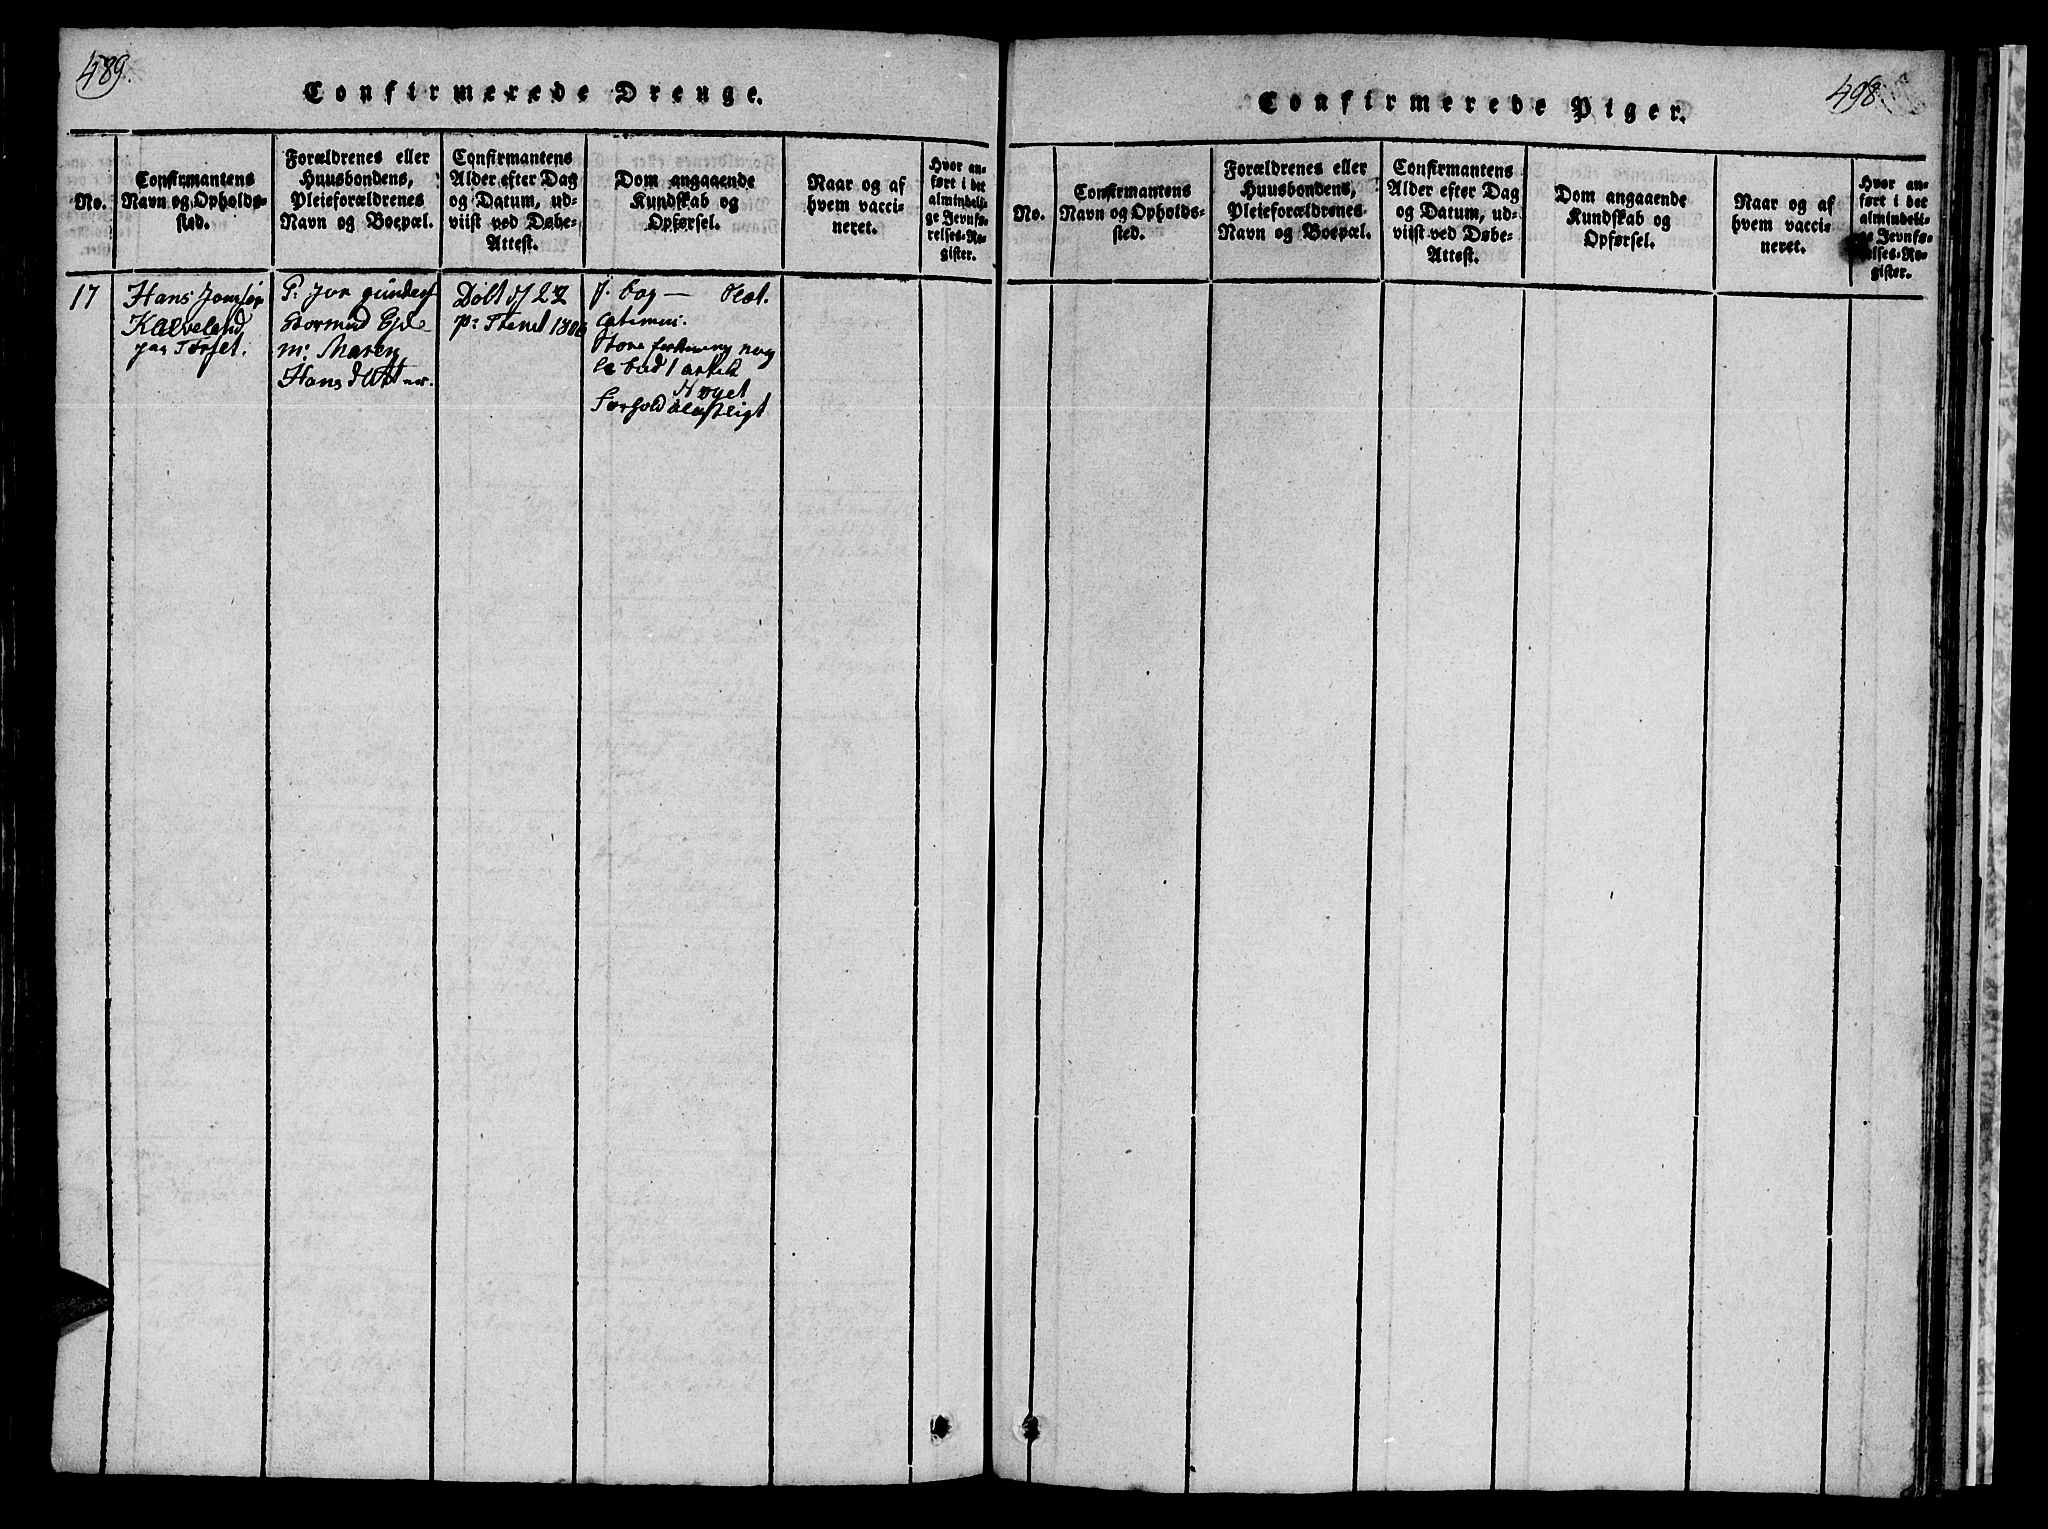 489.
Confirmerede Drenge.
No.
Confirmantens
Navn og Opholds-
sted.
Forældrenes eller
Huusbondens,
Pleieforældrenes
Navn og Boepæl.
Confirmantens
Alder efter Dag
og Datum, ud-
viist ved Døbe-
Attest.
Dom angaaende
Kundskab og
Opførsel.
Naar og af
hvem vacci-
neret.
Hvor an-
ført i det
almindeli-
ge Jevnfø-
relses-Re-
gister.
17
Hans
Kalveland
Torset.
gunders
m: Maren
Hans datter.
Døbt 22
1806
f. bog —
Noget
498
Confirmerede Piger.
No.
Confirmantens
Navn og Opholds-
sted.
Forældrenes eller
Huusbondens,
Pleieforældrenes
Navn og Boepæl.
Confirmantens
Alder efter Dag
og Datum, ud-
viist ved Døbe-
Attest.
Dom angaaende
Kundskab og
Opførsel.
Naar og af
hvem vacci-
neret.
Hvor an-
ført i det
almindeli-
ge Jevnfø-
relses-Re-
gister.